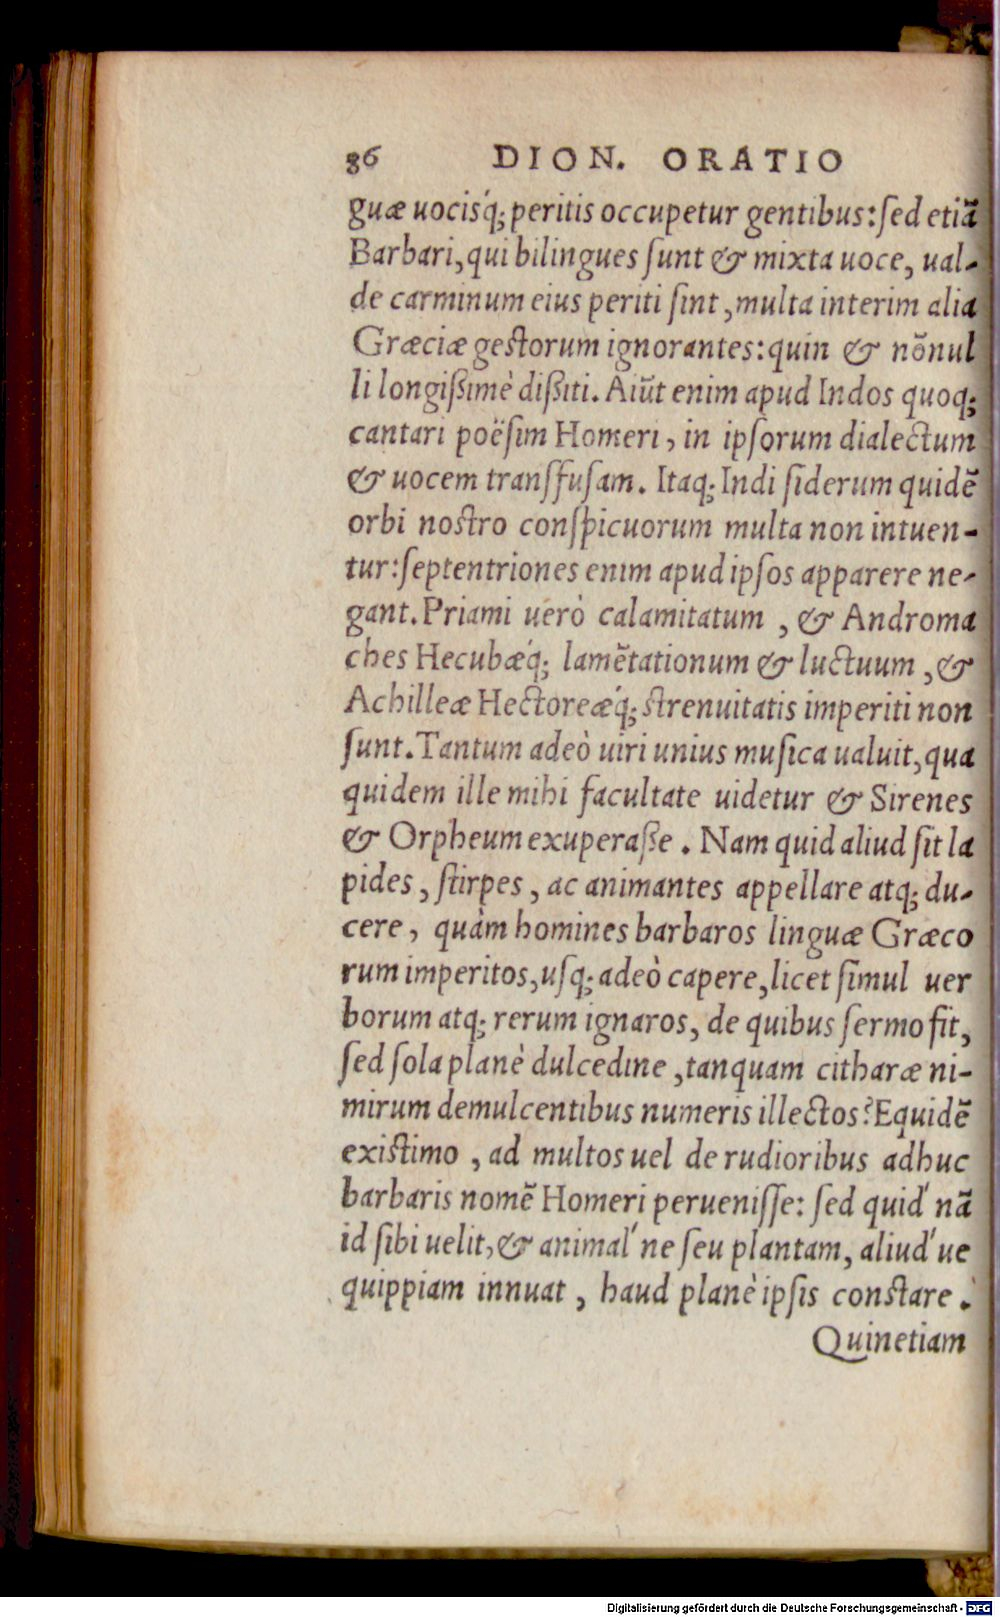 86 DION. ORATIO
guæ uocisq́; peritis occupetur gentibus: sed etiã
Barbari, qui bilingues sunt & mixta uoce, ual-
de carminum eius periti sint, multa interim alia
Græciæ gestorum ignorantes: quin & nõnul
li longißimè dißiti. Aiũt enim apud Indos quoq;
cantari poësim Homeri, in ipsorum dialectum
& uocem transfusam. Itaq; Indi siderum quidẽ
orbi nostro conspicuorum multa non intuen-
tur: septentriones enim apud ipsos apparere ne-
gant. Priami uerò calamitatum, & Androma
ches Hecubæq́; lamẽtationum & luctuum, &
Achilleæ Hectoreæq́; strenuitatis imperiti non
sunt. Tantum adeò uiri unius musica ualuit, qua
quidem ille mihi facultate uidetur & Sirenes
& Orpheum exuperaße. Nam quid aliud sit la
pides, stirpes, ac animantes appellare atq; du-
cere, quàm homines barbaros linguæ Græco
rum imperitos, usq; adeò capere, licet simul uer
borum atq; rerum ignaros, de quibus sermo fit,
sed sola planè dulcedine, tanquam citharæ ni-
mirum demulcentibus numeris illectos? Equidẽ
existimo, ad multos uel de rudioribus adhuc
barbaris nomẽ Homeri peruenisse: sed quid' nã
id sibi uelit, & animal' ne seu plantam, aliud' ue
quippiam innuat, haud planè ipsis constare.
Quinetiam
Digitalisierung gefördert durch die Deutsche Forschungsgemeinschaft - DFG